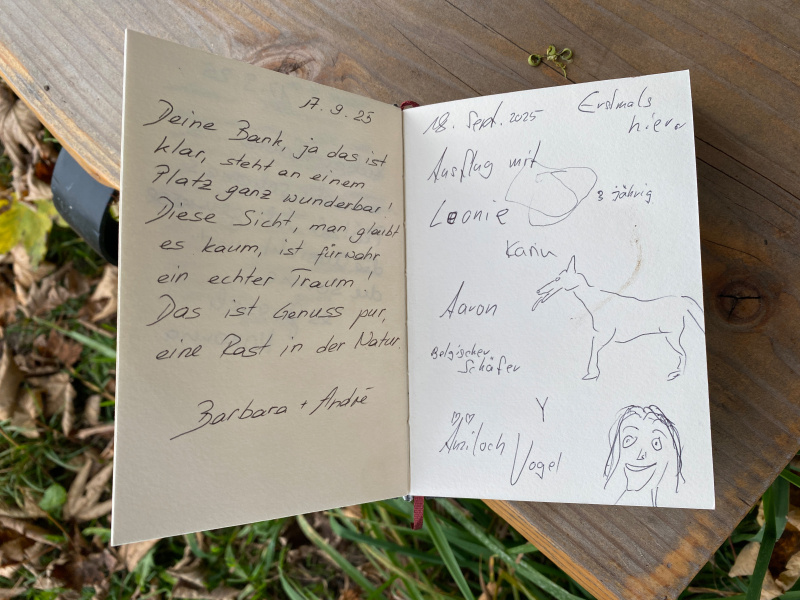 17.9.25
Deine Bank, ja das ist
klar, steht an einem
Platz ganz wunderbar!
Diese Sicht, man glaubt
es kaum, ist fürwahr
ein echter Traum!
Das ist Genuss pur,
eine Rast in der Natur.
Barbara + André
18. Sept. 2025 Erstmals
hier
Ausflug mit
Leonie 3 jährig
Karin
Aaron
Belgischer
Schäfer
Y
Vogel